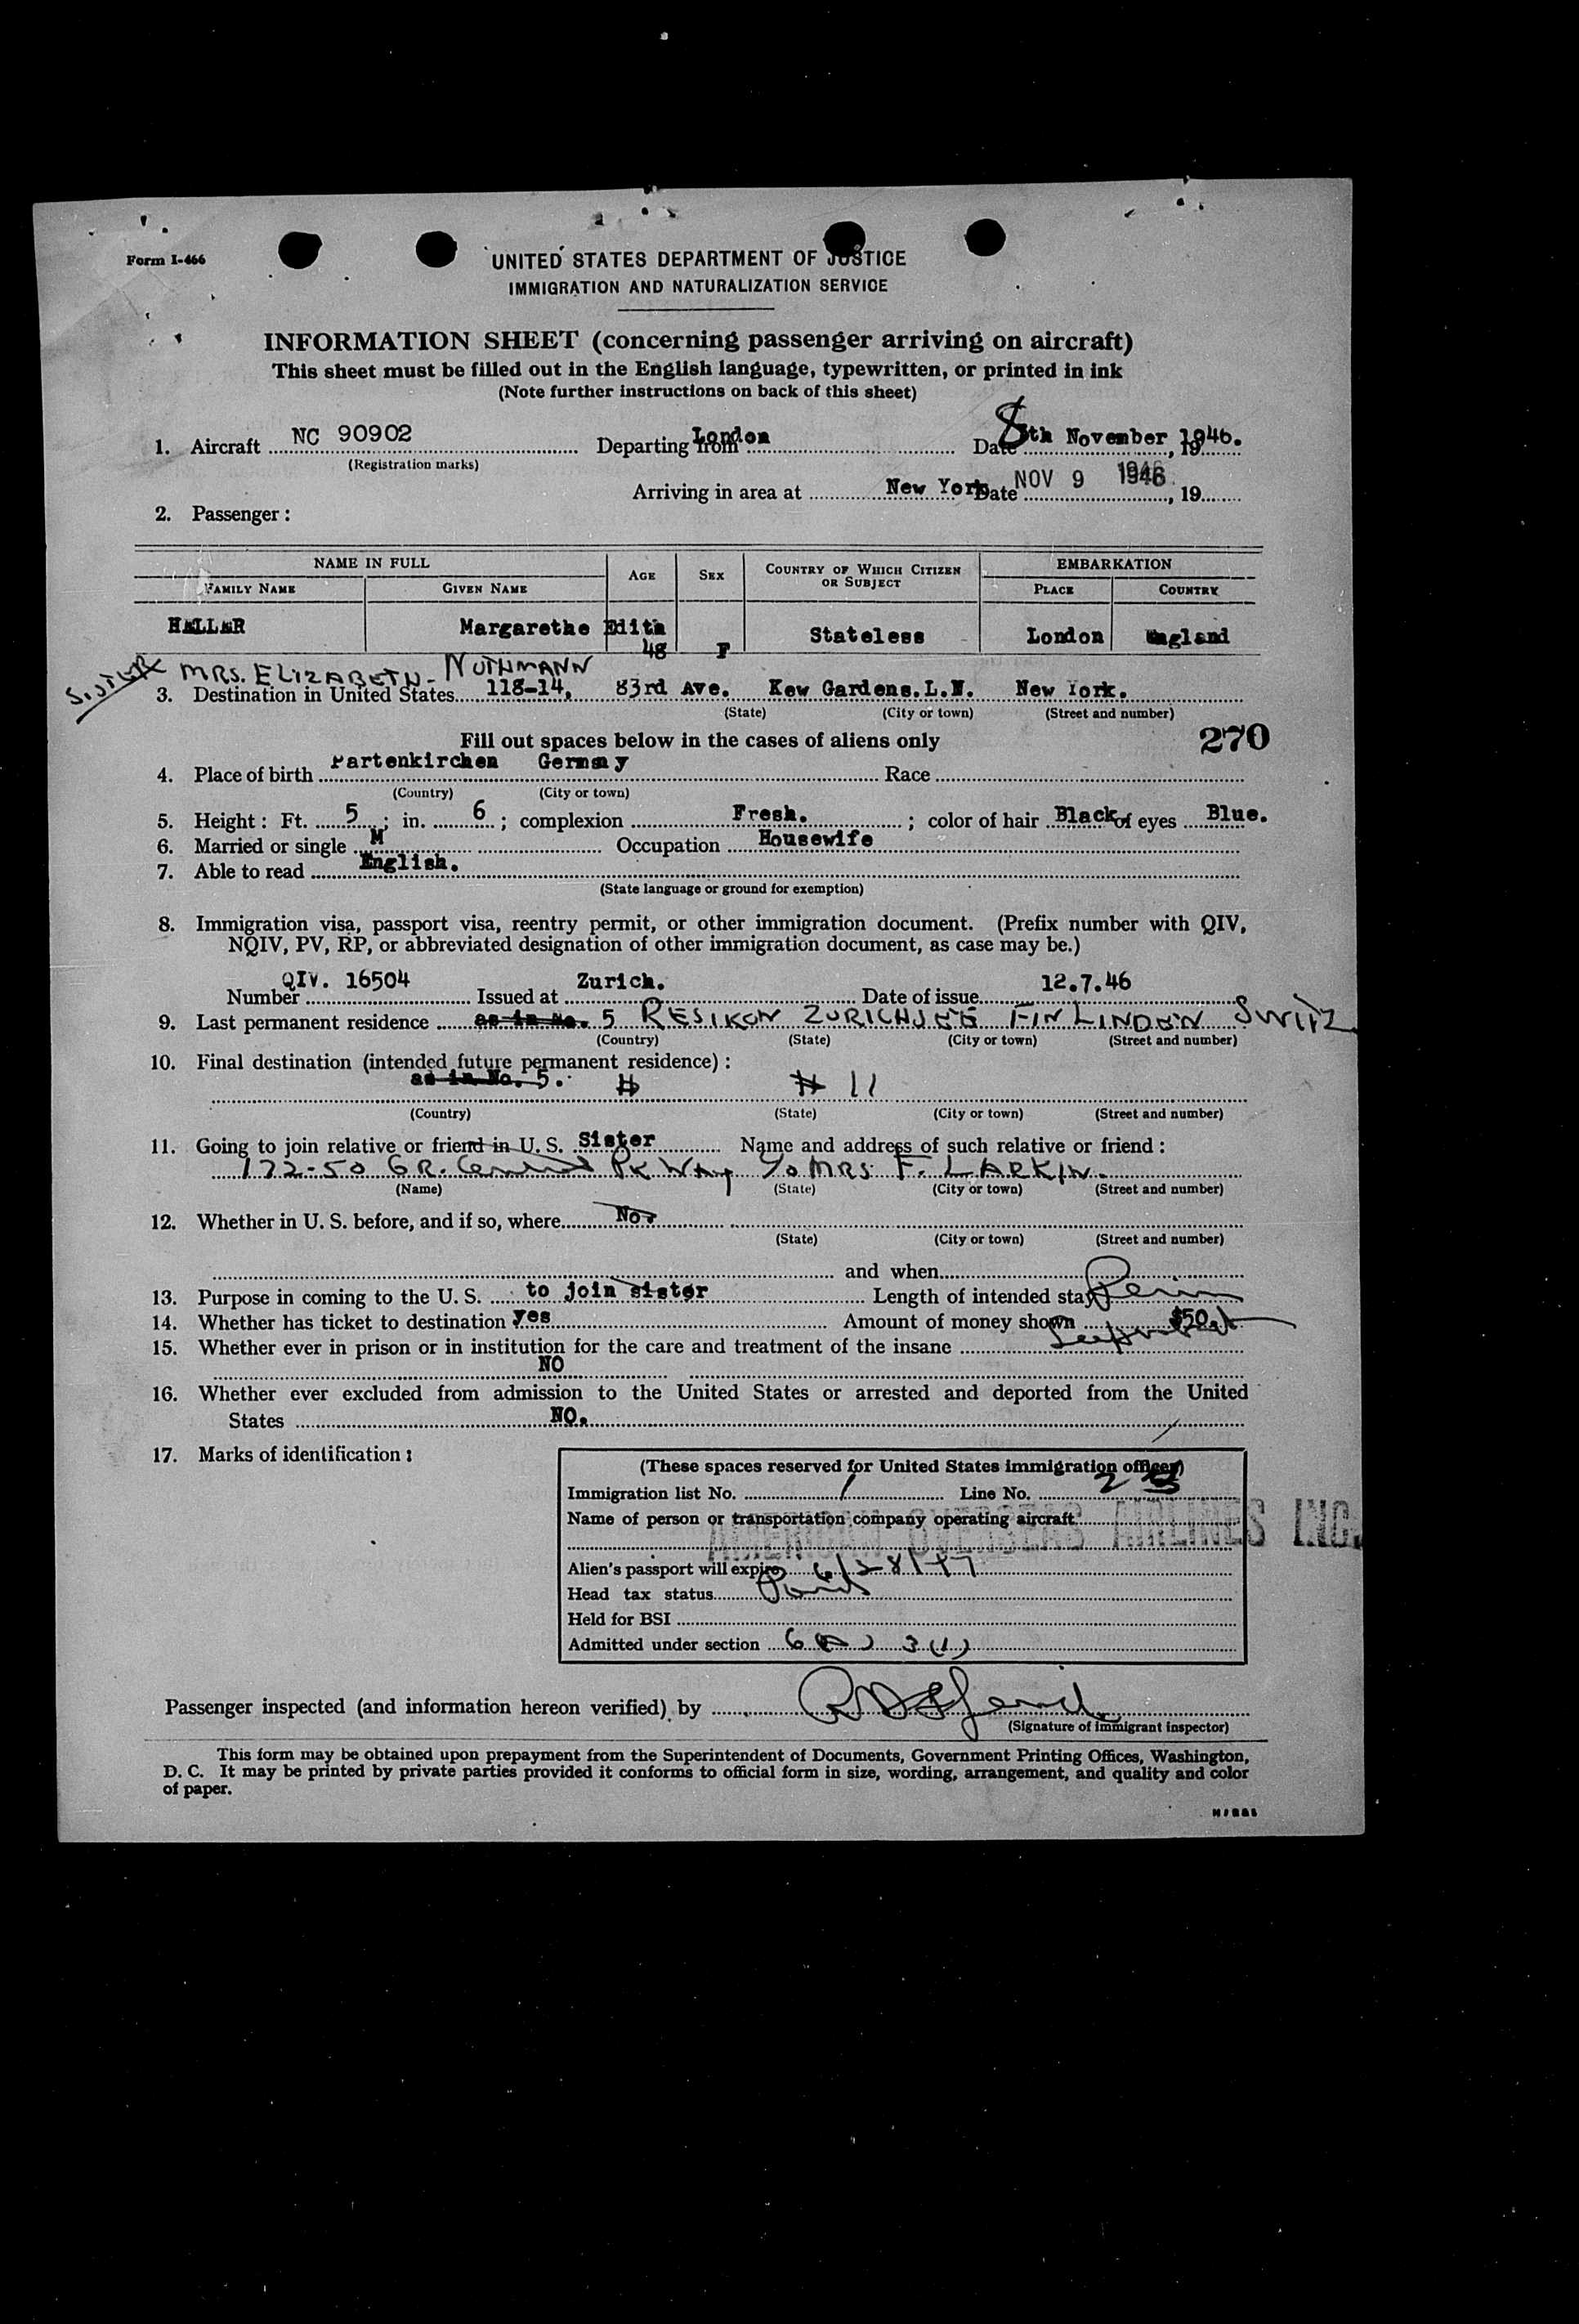 Form I-466
UNITED STATES DEPARTMENT OF JUSTICE
IMMIGRATION AND NATURALIZATION SERVICE
INFORMATION SHEET (concerning passenger arriving on aircraft)
This sheet must be filled out in the English language, typewritten, or printed in ink
(Note further instructions on back of this sheet)
1. Aircraft NC 90902 Departing from London Date 8th November 1946., 19
(Registration marks)
Arriving in area at New York Date NOV 9 1946, 19
2. Passenger:
NAME IN FULL AGE SEX COUNTRY OF WHICH CITIZEN OR SUBJECT EMBARKATION
FAMILY NAME GIVEN NAME PLACE COUNTRY
HELLER Margarethe Edith 48 F Stateless London England
SISTER MRS. ELIZABETH- NUTHMANN
3. Destination in United States 118-14, 83rd Ave. Kew Gardens.L.N. New York.
(State) (City or town) (Street and number)
Fill out spaces below in the cases of aliens only 270
4. Place of birth Partenkirchen Germany Race
(Country) (City or town)
5. Height: Ft. 5; in. 6; complexion Fresh.; color of hair Black of eyes Blue.
6. Married or single M Occupation Housewife
7. Able to read English.
(State language or ground for exemption)
8. Immigration visa, passport visa, reentry permit, or other immigration document. (Prefix number with QIV,
NQIV, PV, RP, or abbreviated designation of other immigration document, as case may be.)
Number QIV. 16504 Issued at Zurich. Date of issue 12.7.46
9. Last permanent residence as in No. 5 RESIKON ZURICHSEE FIN LINDEN SWITZ
(Country) (State) (City or town) (Street and number)
10. Final destination (intended future permanent residence):
as in No. 5. # # 11
(Country) (State) (City or town) (Street and number)
11. Going to join relative or friend in U. S. Sister Name and address of such relative or friend:
172-50 GR. Central Pk Way c/o MRS. F. LARKIN.
(Name) (State) (City or town) (Street and number)
12. Whether in U. S. before, and if so, where No.
(State) (City or town) (Street and number)
and when
13. Purpose in coming to the U. S. to join sister Length of intended stay Perm
14. Whether has ticket to destination yes Amount of money shown $50.
15. Whether ever in prison or in institution for the care and treatment of the insane
NO
16. Whether ever excluded from admission to the United States or arrested and deported from the United
States NO.
17. Marks of identification:
(These spaces reserved for United States immigration officer)
Immigration list No. 1 Line No. 2
Name of person or transportation company operating aircraft
AMERICAN OVERSEAS AIRLINES INC.
Alien's passport will expire 6/28/47
Head tax status Paid
Held for BSI
Admitted under section 6 (A) 3 (1)
Passenger inspected (and information hereon verified) by
(Signature of immigrant inspector)
This form may be obtained upon prepayment from the Superintendent of Documents, Government Printing Offices, Washington,
D. C. It may be printed by private parties provided it conforms to official form in size, wording, arrangement, and quality and color
of paper.